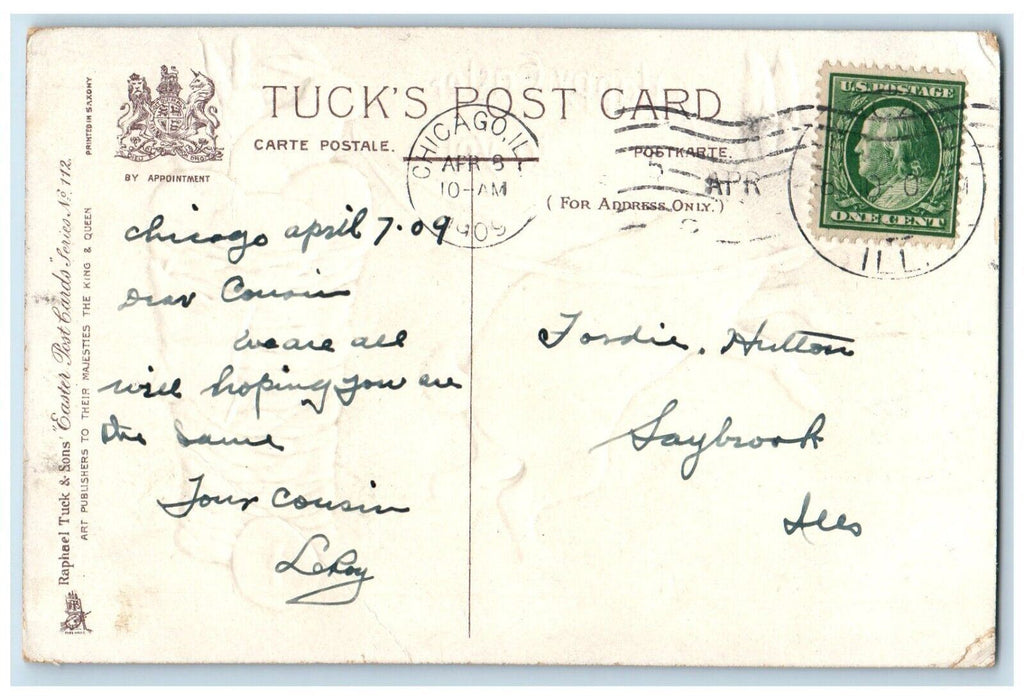 TUCK'S POST CARD
CARTE POSTALE.
POSTKARTE.
(FOR ADDRESS ONLY.)
BY APPOINTMENT
PRINTED IN SAXONY
Raphael Tuck & Sons' "Easter Post Cards" Series No. 112.
ART PUBLISHERS TO THEIR MAJESTIES THE KING & QUEEN
CHICAGO, ILL
APR 8
10-AM
1909
APR
ILL.
U.S. POSTAGE
ONE CENT
chicago april 7-09
Dear Cousin
we are all
well hoping you are
the same
Your cousin
LeRoy
Fordie. Hutton
Saybrook
Ills